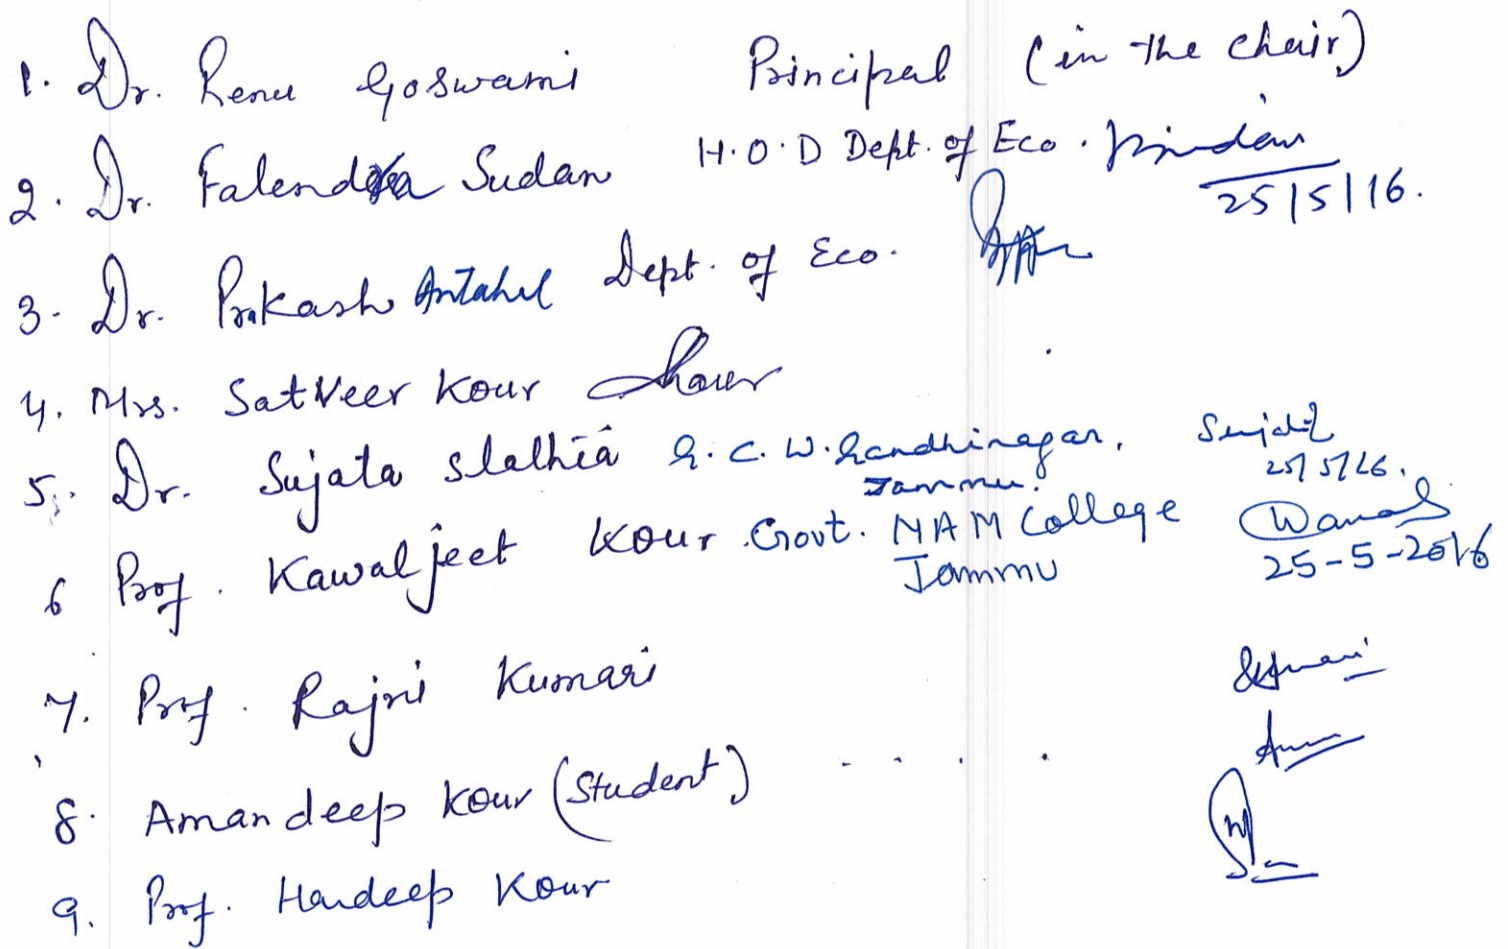 1. Dr. Renu Goswami Principal (in the chair)
2. Dr. Falendra Sudan H.O.D Dept. of Eco.
25/5/16.
3. Dr. Prakash Antahal Dept. of Eco.
4. Mrs. Satveer Kour
5. Dr. Sujata Slathia G.C.W. Gandhinagar,
Jammu. 25/5/16.
6 Prof. Kawaljeet Kour Govt. MAM College
Jammu 25-5-2016
7. Prof. Rajni Kumari
8. Amandeep Kour (Student) . . . .
9. Prof. Hardeep Kour